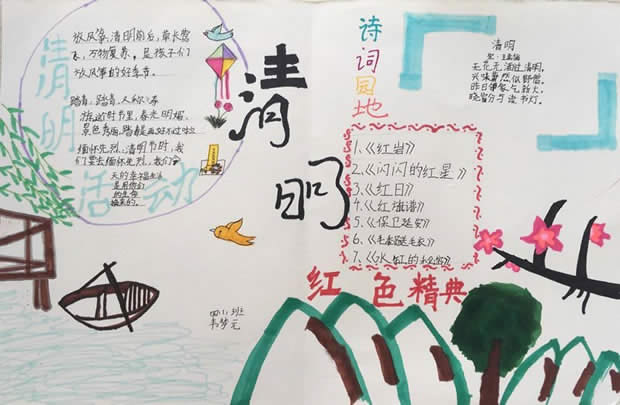 清明活动
放风筝,清明前后,草长莺
飞,万物复苏,是孩子们
放风筝的好季节。
踏青:踏青,人称:春
游,这时节里,春光明媚,
景色秀丽,踏青
缅怀先烈:清明节时,我
们要去缅怀先烈,我们今
天的幸福生活
是用他们
的生命
换来的。
清明
诗词园地
清明
宋·王禹偁
无花无酒过清明,
兴味萧然似野僧。
昨日邻家乞新火,
晓窗分与读书灯。
1、《红岩》
2、《闪闪的红星》
3、《红日》
4、《红旗谱》
5、《保卫延安》
6、
7、
红色精典
四
班